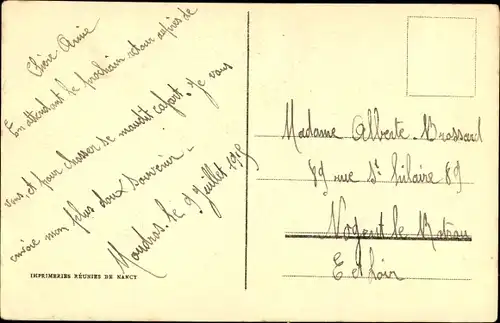 Chère Amie
En attendant le prochain retour auprès de
vous, et pour chasser ce maudit cafard. Je vous
envoie mon plus doux souvenir -
le 9 Juillet 1915
IMPRIMERIES RÉUNIES DE NANCY
Madame Alberte Brossard
89 rue St hilaire 89
Nogent le Rotrou
E et Loir